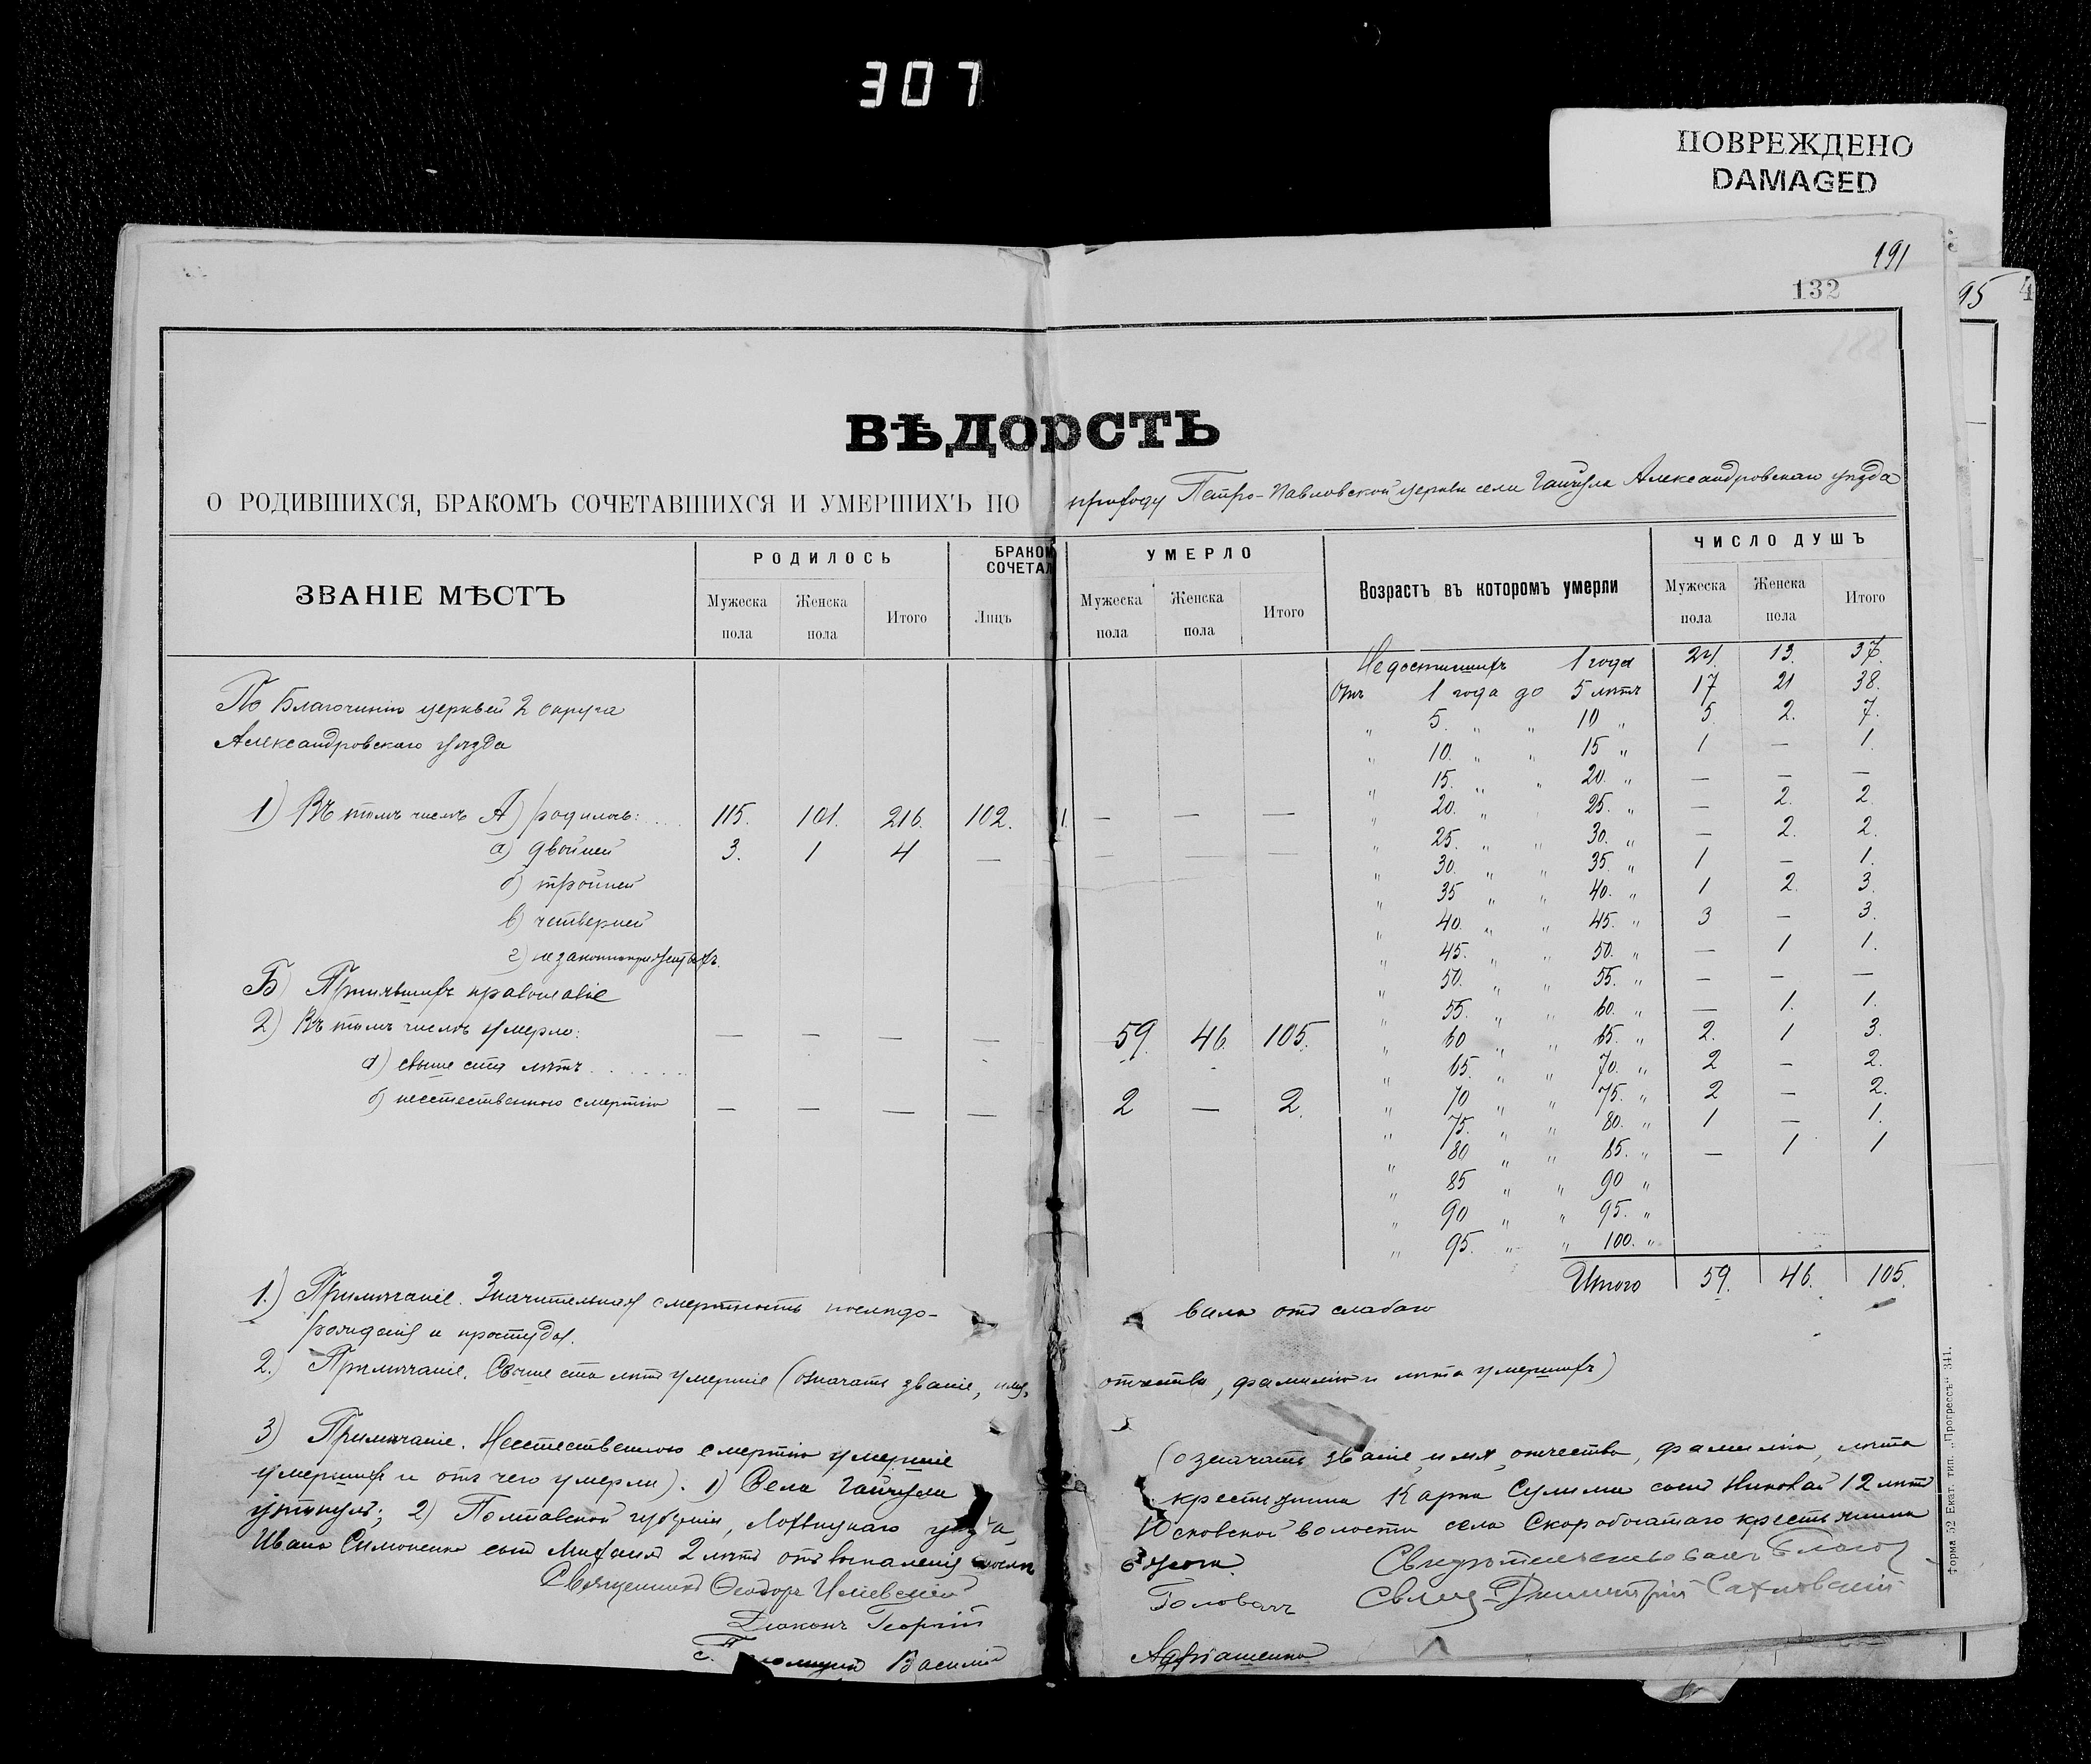 307
ПОВРЕЖДЕНО
DAMAGED
191
132
95 4
ВѢДОРСТЬ
О РОДИВШИХСЯ, БРАКОМЪ СОЧЕТАВШИХСЯ И УМЕРШИХЪ ПО приходу Петро-Павловской церкви села Гайчула Александровскаго уѣзда
ЗВАНІЕ МѢСТЪ
РОДИЛОСЬ
БРАКОМ
СОЧЕТАЛ
УМЕРЛО
Возрастъ въ которомъ умерли
ЧИСЛО ДУШЪ
Мужеска пола
Женска пола
Итого
Лицъ
Мужеска пола
Женска пола
Итого
Мужеска пола
Женска пола
Итого
По Благочинію церквей 2 округа
Александровскаго уѣзда
1) Въ томъ числѣ А) родилось: 115. 101. 216. 102. 1. — — —
а) двойней 3. 1 4 — — — —
б) тройней
в) четверней
г) незаконнорожденныхъ.
Б) Принявшихъ православіе
2) Въ томъ числѣ умерло: — — — — 59. 46. 105.
а) свыше ста лѣтъ
б) неестественною смертію — — — — 2 — 2.
Недостигшихъ 1 года 24. 13. 37.
Отъ 1 года до 5 лѣтъ 17 21 38.
„ 5. „ „ 10 „ 5. 2. 7.
„ 10. „ „ 15 „ 1 — 1.
„ 15. „ „ 20. „ — — —
„ 20. „ 25. „ — 2. 2.
„ 25. „ „ 30. „ — 2. 2.
„ 30. „ „ 35. „ 1 — 1.
„ 35 „ „ 40. „ 1 2. 3.
„ 40. „ „ 45. „ 3 — 3.
„ 45. „ „ 50. „ — 1 1.
„ 50. „ „ 55. „ — — —
„ 55. „ „ 60. „ — 1. 1.
„ 60 „ „ 65. „ 2. 1 3.
„ 65. „ „ 70. „ 2 — 2.
„ 70 „ „ 75. „ 2 — 2.
„ 75. „ „ 80. „ 1 — 1.
„ 80 „ „ 85. „ — 1 1
„ 85 „ „ 90 „
„ 90 „ „ 95. „
„ 95. „ „ 100. „
Итого 59. 46. 105.
1.) Примѣчаніе. Значительная смертность послѣдо- вала отъ слабаго
рожденія и простуды.
2.) Примѣчаніе. Свыше ста лѣтъ умершіе (означать званіе, имя, отчество, фамилію и лѣта умершихъ)
3) Примѣчаніе. Неестественною смертію умершіе (означать званіе, имя, отчество, фамилію, лѣта
умершихъ и отъ чего умерли). 1) Села Гайчула крестьянина Карпа Сулимы сынъ Николай 12 лѣтъ
утонулъ; 2) Полтавской губерніи, Лохвицкаго уѣзда, Юсковской волости села Скоробогатаго крестьянина
Ивана Симоненка сынъ Михаилъ 2 лѣтъ отъ воспаленія послѣ ожога.
Священникъ Ѳеодоръ
Діаконъ Георгій Головачъ
Василій
Свидѣтельствовалъ Благоч.
Свящ. Димитрій
Форма 52 Екат. тип. „Прогрессъ“ 341.